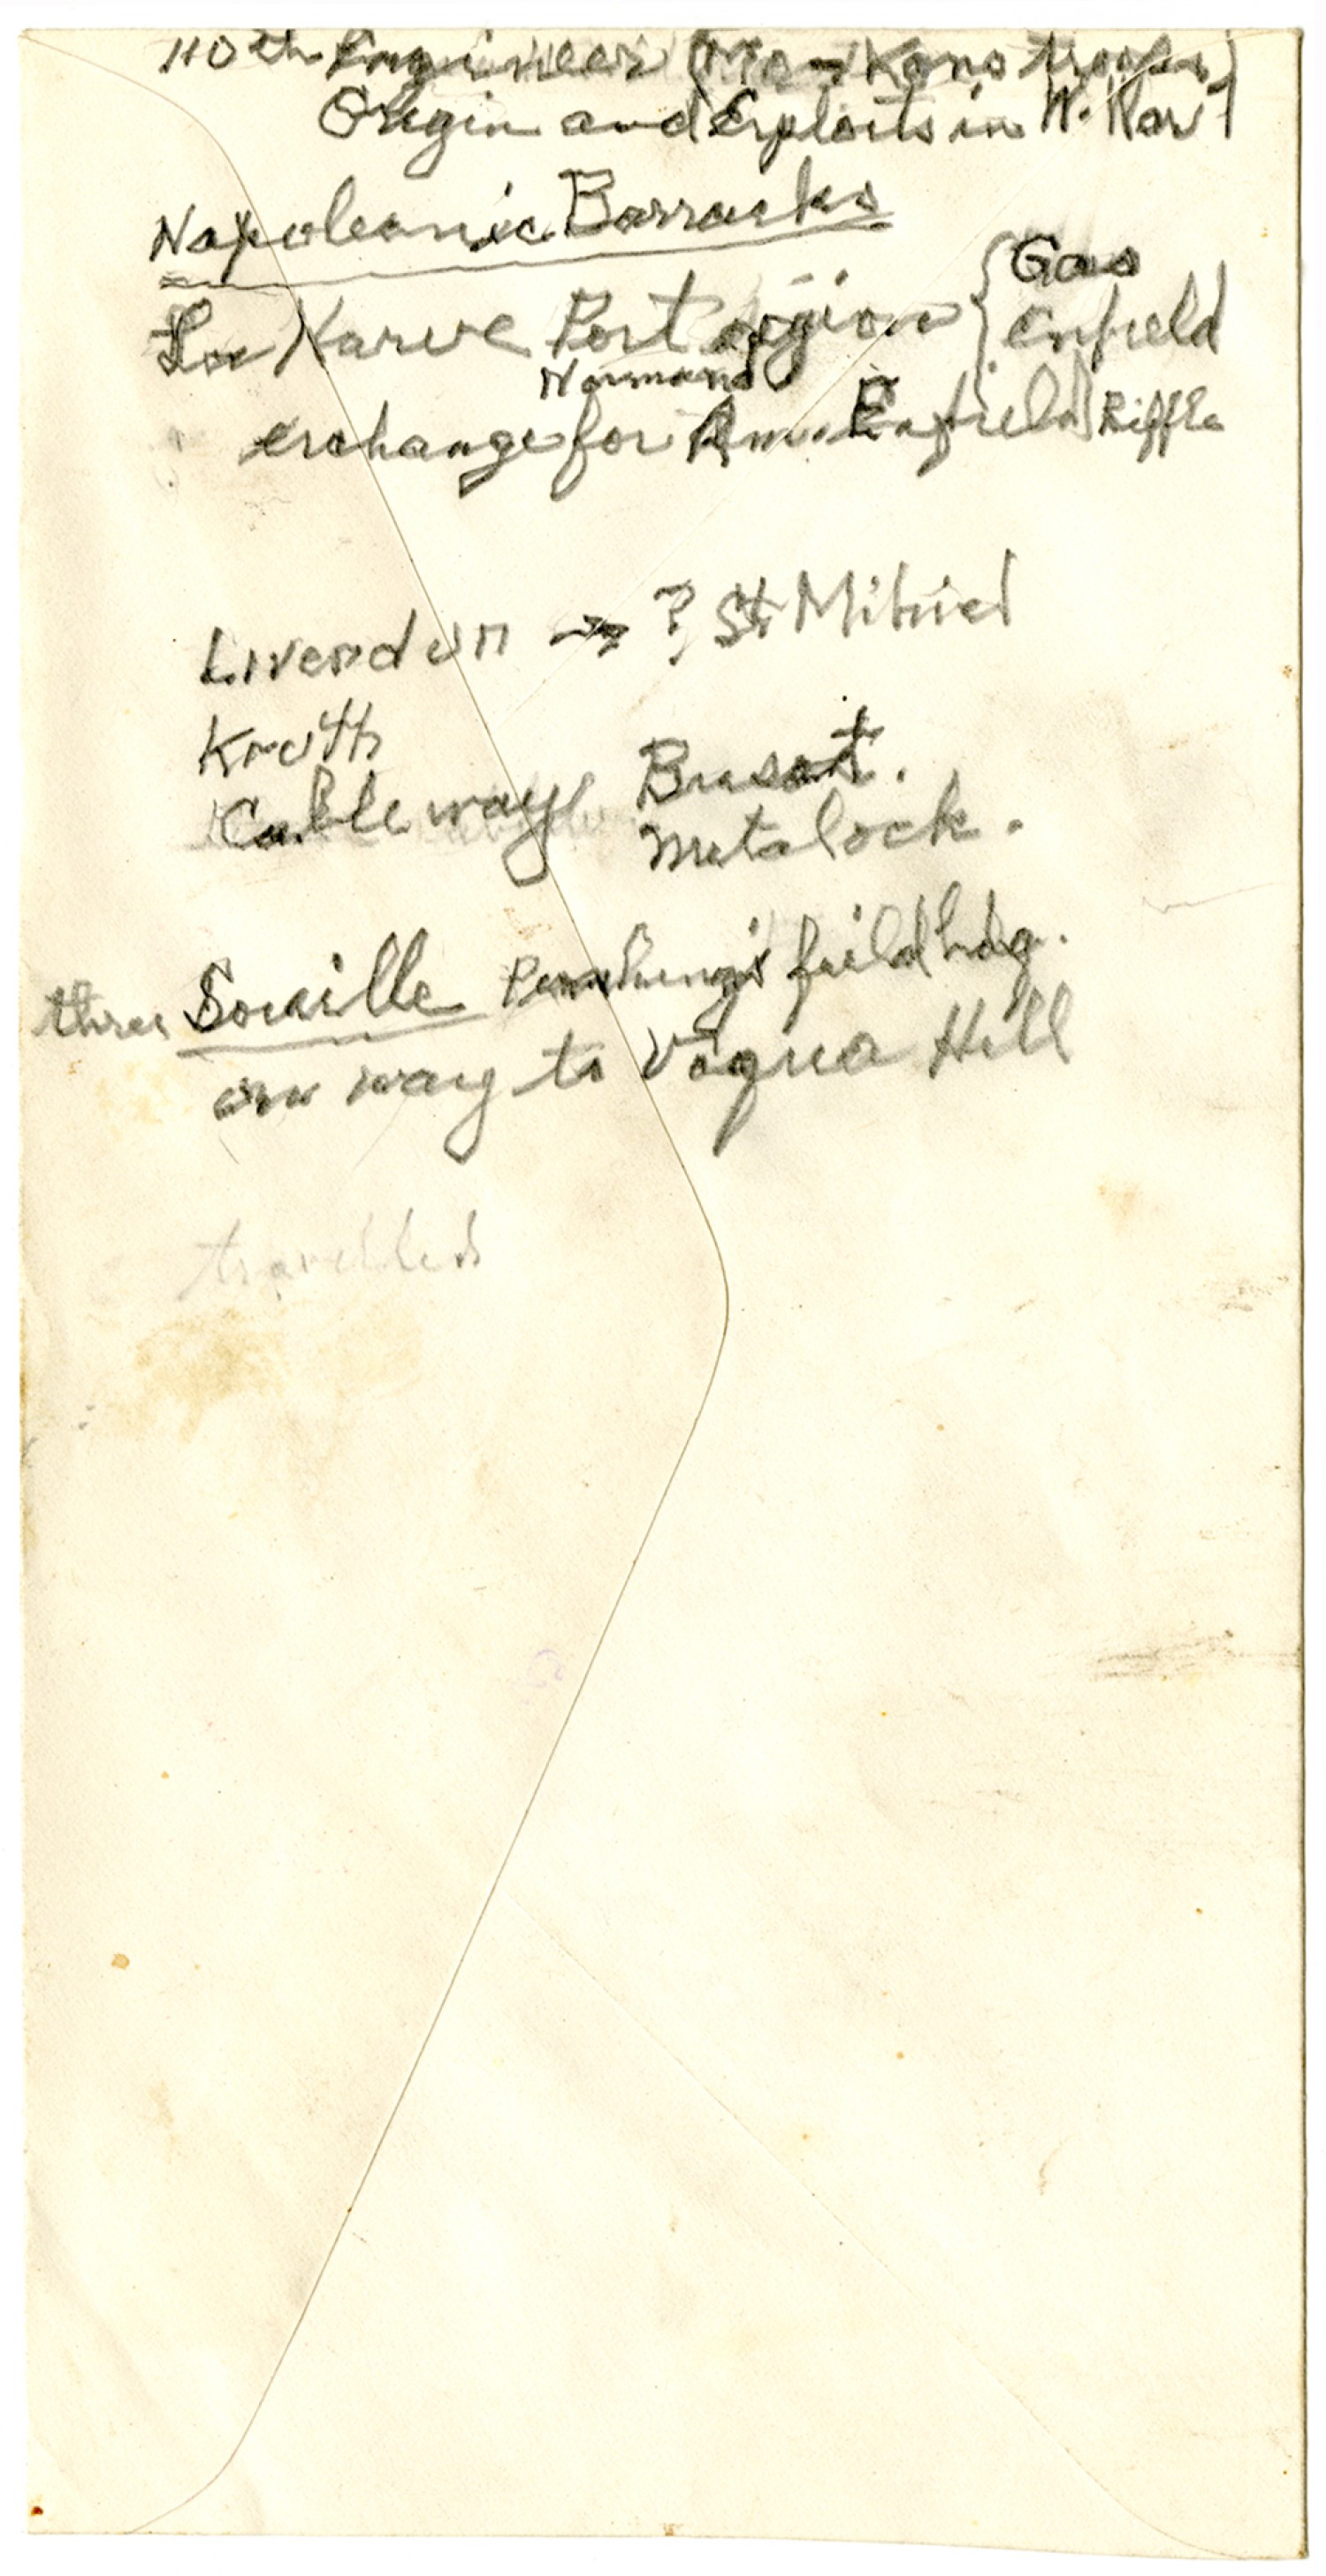 110th Engineer (Mo-Kans troops)
Origin and Exploits in W. War 1
Napoleonic Barracks
La Harve Port { Gas
Enfield
Normand
exchange for Am. Enfield Riffle
Liverdun → ? St. Mihiel
Kruth
Cableway Busat.
Metalock.
three Souille Pershing's feild hdq.
on way to Vaqua Hill
travelled